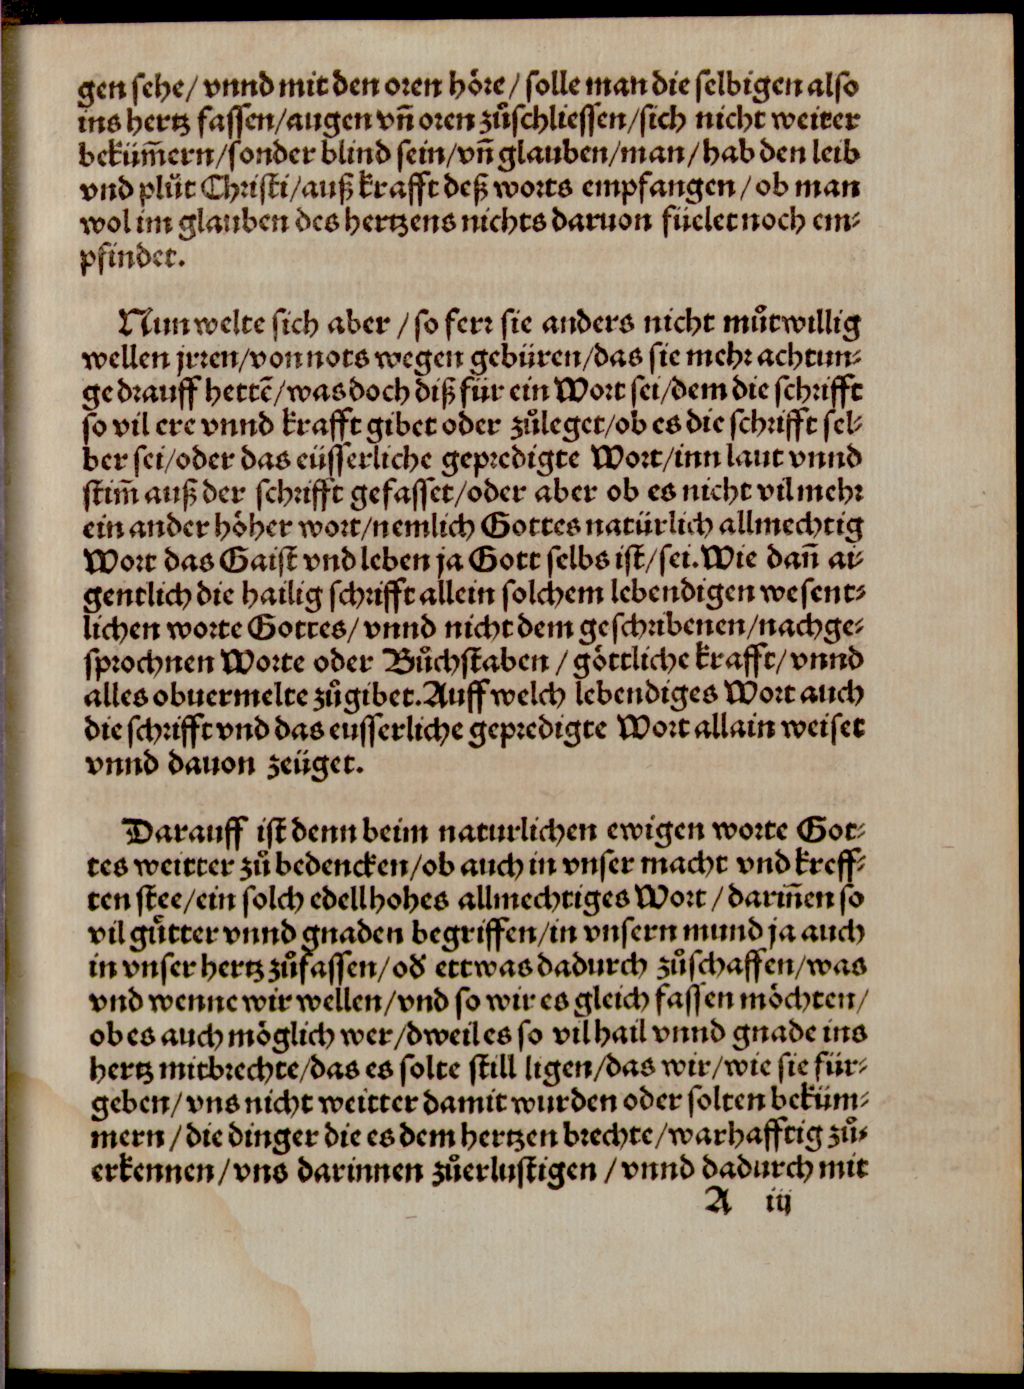 gen sehe/ vnnd mit den oren höre/ solle man die selbigen also
ins hertz fassen/augen vn̄ oren zůschliessen/sich nicht weiter
bekūm̄ern/sonder blind sein/vn̄ glauben/man/hab den leib
vnd plůt Christi/auß krafft deß worts empfangen/ ob man
wol im glauben des hertzens nichts daruon füelet noch em-
pfindet.
Nun welte sich aber / so ferr sie anders nicht můtwillig
wellen jrren/von nots wegen gebüren/das sie mehr achtun-
ge drauff hettē/was doch diß für ein Wort sei/dem die schrifft
so vil ere vnnd krafft gibet oder zůleget/ob es die schrifft sel-
ber sei/oder das eüsserliche gepredigte Wort/inn laut vnnd
stim̄ auß der schrifft gefasset/oder aber ob es nicht vil mehr
ein ander höher wort/nemlich Gottes natürlich allmechtig
Wort das Gaist vnd leben ja Gott selbs ist/sei. Wie dan̄ ai-
gentlich die hailig schrifft allein solchem lebendigen wesent-
lichen worte Gottes/ vnnd nicht dem geschribenen/nachge-
sprochnen Worte oder Bůchstaben / göttliche krafft/ vnnd
alles obuermelte zůgibet. Auff welch lebendiges Wort auch
die schrifft vnd das eusserliche gepredigte Wort allain weiset
vnnd dauon zeüget.
Darauff ist denn beim naturlichen ewigen worte Got-
tes weitter zů bedencken/ob auch in vnser macht vnd kreff-
ten stee/ein solch edell hohes allmechtiges Wort / darin̄en so
vil gůtter vnnd gnaden begriffen/in vnsern mund ja auch
in vnser hertz zůfassen/ od̕ ettwas dadurch zůschaffen/was
vnd wenne wir wellen/vnd so wir es gleich fassen möchten/
ob es auch möglich wer/dweil es so vil hail vnnd gnade ins
hertz mitbrechte/das es solte still ligen/das wir/wie sie für-
geben/ vns nicht weitter damit wurden oder solten beküm-
mern / die dinger die es dem hertzen brechte/warhafftig zů-
erkennen/vns darinnen zůerlustigen / vnnd dadurch mit
A iij